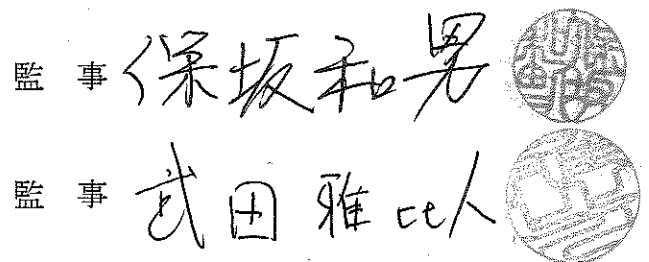 監 事 保坂和男
監 事 武田雅比人